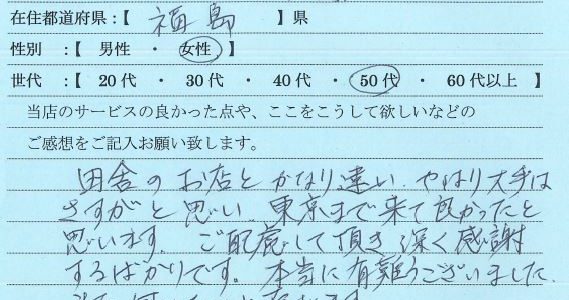 在住都道府県:【 福島 】県
性別 :【 男性 ・ 女性 】
世代 :【 20代 ・ 30代 ・ 40代 ・ 50代 ・ 60代以上 】
当店のサービスの良かった点や、ここをこうして欲しいなどの
ご感想をご記入お願い致します。
田舎のお店とかなり違い、やはり大手は
さすがと思い、東京まで来て良かったと
思います。ご配慮して頂き深く感謝
するばかりです。本当に有難うございました。